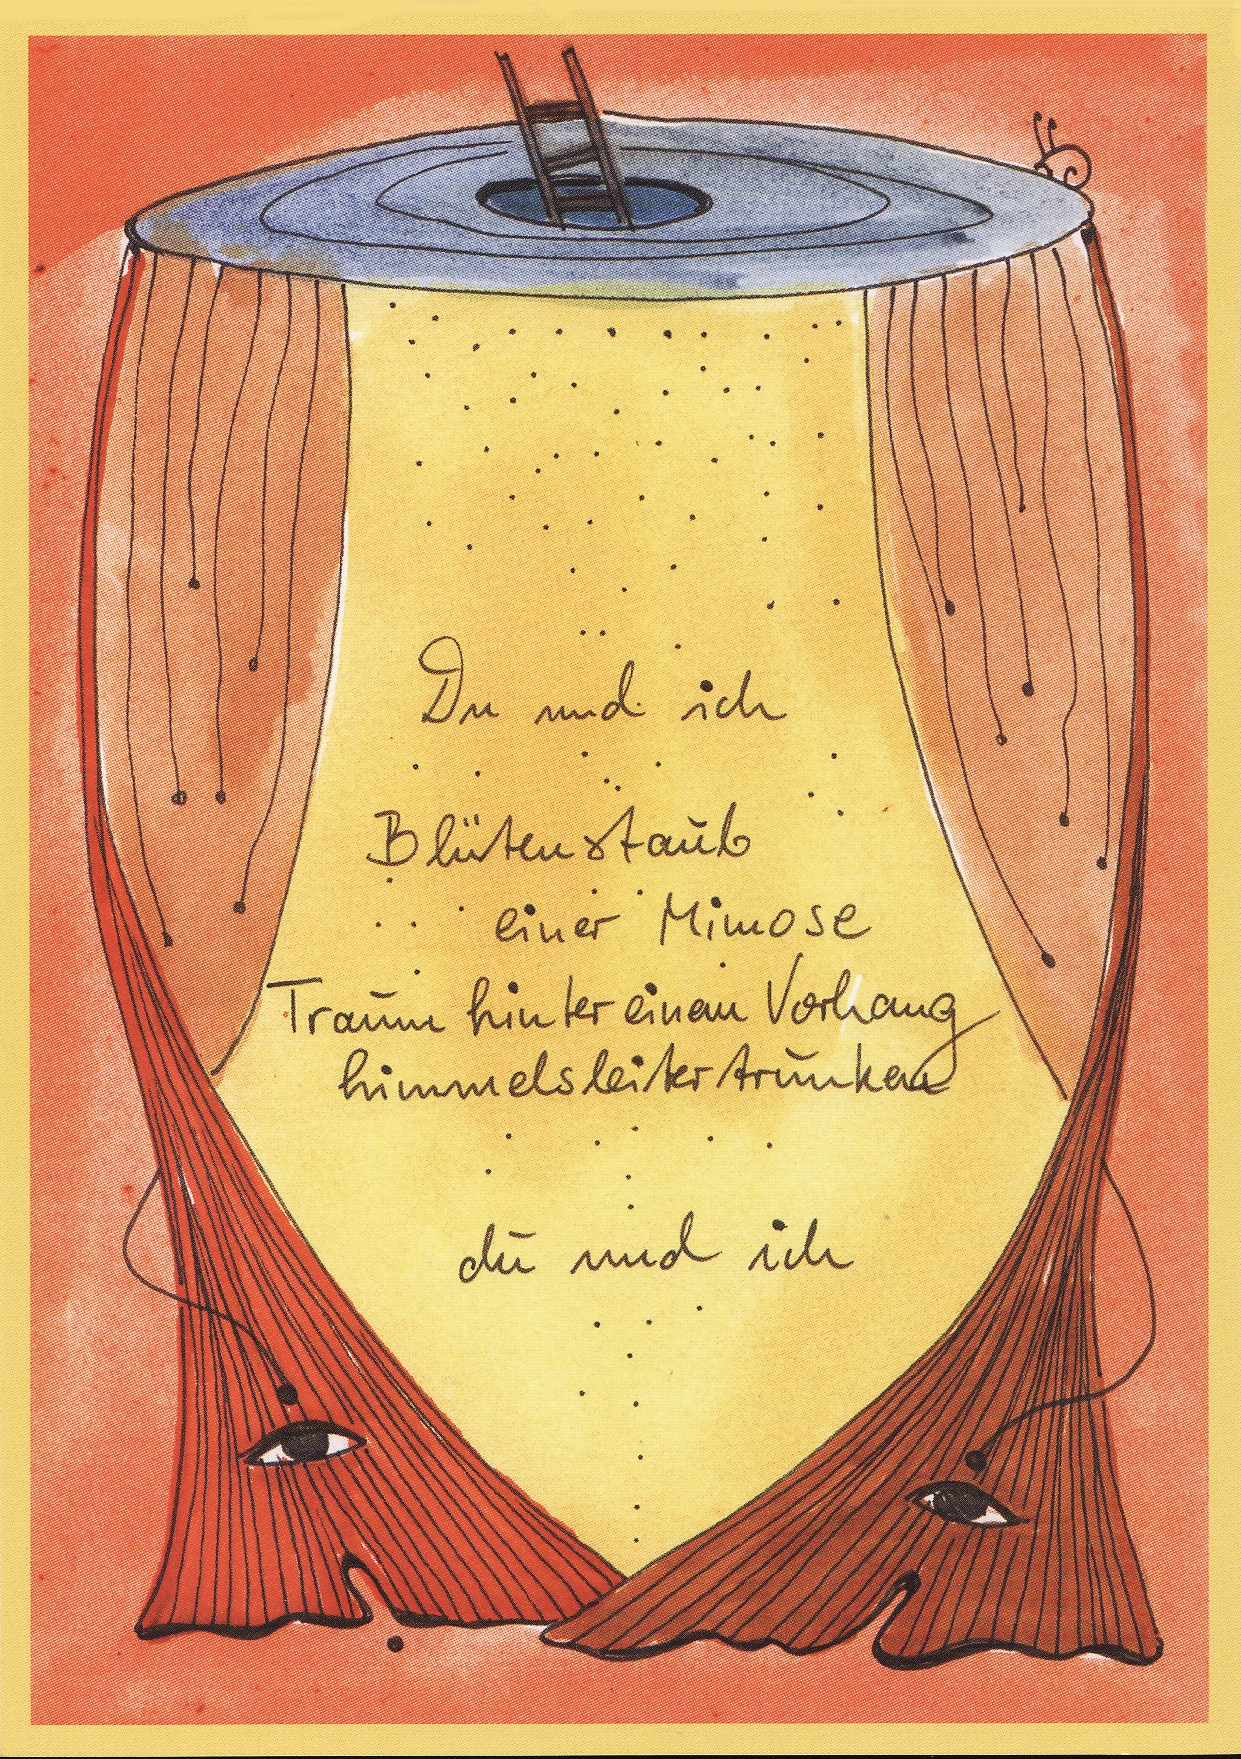 Du und ich
Blütenstaub
einer Mimose
Traum hinter einem Vorhang
himmelsleitertrunken
du und ich